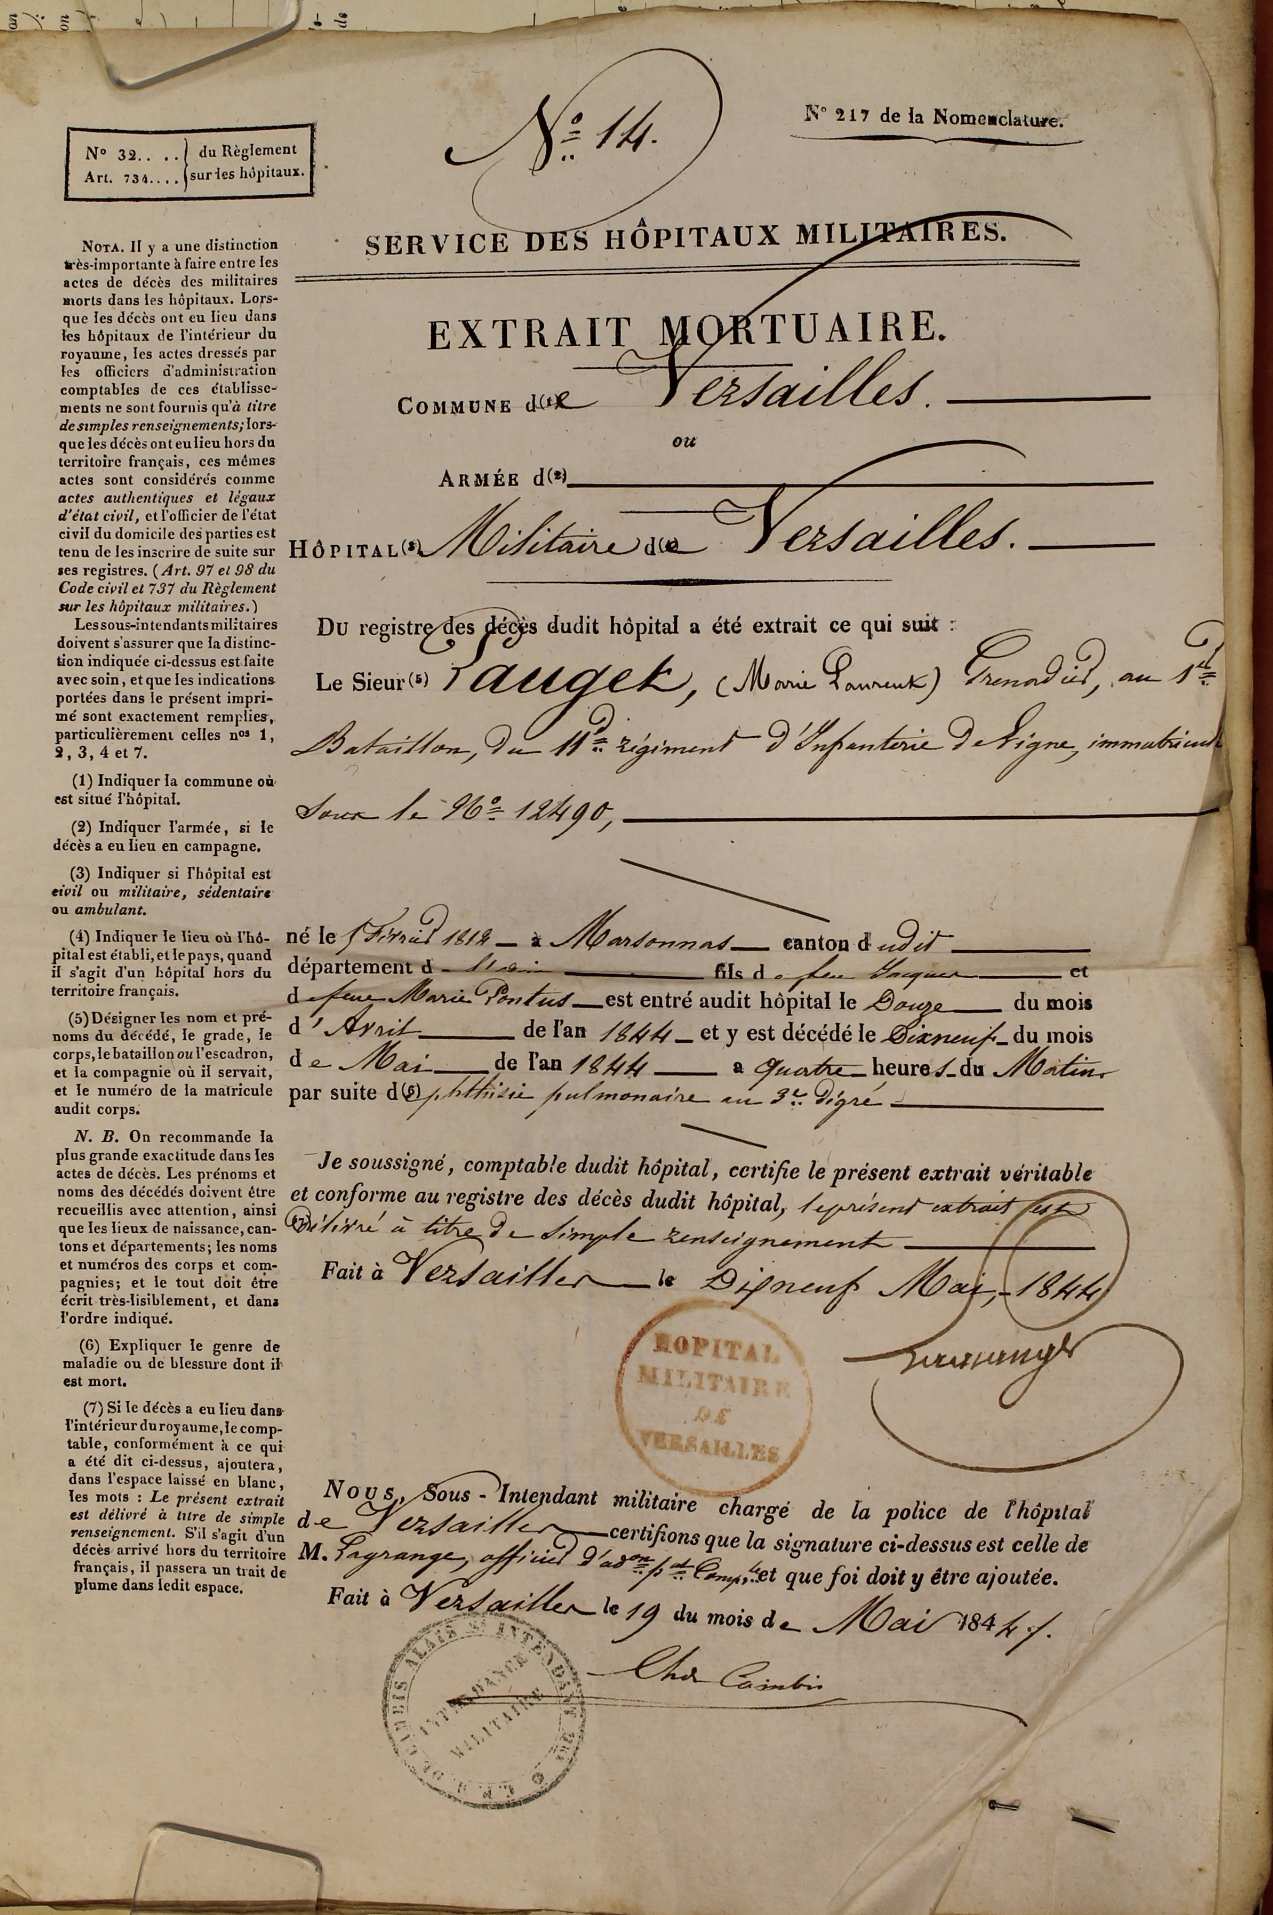 N° 14.
N° 217 de la Nomenclature.
N° 32.... du Règlement
Art. 734.... sur les hôpitaux.
SERVICE DES HÔPITAUX MILITAIRES.
EXTRAIT MORTUAIRE.
COMMUNE d(1)e Versailles.
ou
ARMÉE d(2)
HÔPITAL(3) Militaire de Versailles.
Du registre des décès dudit hôpital a été extrait ce qui suit :
Le Sieur(5) Pauget, (Marie Laurent) Grenadier, au 1er
Bataillon, du 11e régiment d'Infanterie de Ligne, immatriculé
sous le No 12490,
né le Février 1812 à Marsonnas canton dudit
département d fils de feu Jacques et
de feue Marie Pontus est entré audit hôpital le Douze du mois
d'Avril de l'an 1844 et y est décédé le Dixneuf du mois
de Mai de l'an 1844 a quatre heures du Matin
par suite d(6) phthisie pulmonaire au 3e dégré
Je soussigné, comptable dudit hôpital, certifie le présent extrait véritable
et conforme au registre des décès dudit hôpital, le présent extrait est
(7) Délivré à titre de simple renseignement
Fait à Versailles le Dixneuf Mai, 1844
HOPITAL
MILITAIRE
DE
VERSAILLES
Nous, Sous-Intendant militaire chargé de la police de l'hôpital
de Versailles certifions que la signature ci-dessus est celle de
M. Lagrange, officier d'adon pal Compble et que foi doit y être ajoutée.
Fait à Versailles le 19 du mois de Mai 1844.
INTENDANCE
MILITAIRE
NOTA. Il y a une distinction
très-importante à faire entre les
actes de décès des militaires
morts dans les hôpitaux. Lors-
que les décès ont eu lieu dans
les hôpitaux de l'intérieur du
royaume, les actes dressés par
les officiers d'administration
comptables de ces établisse-
ments ne sont fournis qu'à titre
de simples renseignements; lors-
que les décès ont eu lieu hors du
territoire français, ces mêmes
actes sont considérés comme
actes authentiques et légaux
d'état civil, et l'officier de l'état
civil du domicile des parties est
tenu de les inscrire de suite sur
ses registres. (Art. 97 et 98 du
Code civil et 737 du Règlement
sur les hôpitaux militaires.)
Les sous-intendants militaires
doivent s'assurer que la distinc-
tion indiquée ci-dessus est faite
avec soin, et que les indications
portées dans le présent impri-
mé sont exactement remplies,
particulièrement celles nos 1,
2, 3, 4 et 7.
(1) Indiquer la commune où
est situé l'hôpital.
(2) Indiquer l'armée, si le
décès a eu lieu en campagne.
(3) Indiquer si l'hôpital est
civil ou militaire, sédentaire
ou ambulant.
(4) Indiquer le lieu où l'hô-
pital est établi, et le pays, quand
il s'agit d'un hôpital hors du
territoire français.
(5) Désigner les nom et pré-
noms du décédé, le grade, le
corps, le bataillon ou l'escadron,
et la compagnie où il servait,
et le numéro de la matricule
audit corps.
N. B. On recommande la
plus grande exactitude dans les
actes de décès. Les prénoms et
noms des décédés doivent être
recueillis avec attention, ainsi
que les lieux de naissance, can-
tons et départements; les noms
et numéros des corps et com-
pagnies; et le tout doit être
écrit très-lisiblement, et dans
l'ordre indiqué.
(6) Expliquer le genre de
maladie ou de blessure dont il
est mort.
(7) Si le décès a eu lieu dans
l'intérieur du royaume, le comp-
table, conformément à ce qui
a été dit ci-dessus, ajoutera,
dans l'espace laissé en blanc,
les mots : Le présent extrait
est délivré à titre de simple
renseignement. S'il s'agit d'un
décès arrivé hors du territoire
français, il passera un trait de
plume dans ledit espace.